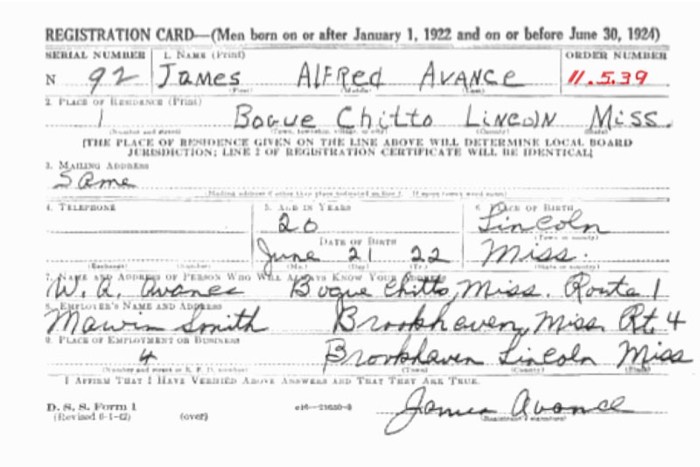 REGISTRATION CARD—(Men born on or after January 1, 1922 and on or before June 30, 1924)
SERIAL NUMBER 1. NAME (Print) ORDER NUMBER
N 92 JAMES ALFRED AVANCE 11.5.39
(First) (Middle) (Last)
2. PLACE OF RESIDENCE (Print)
1 Bogue Chitto LINCOLN Miss.
(Number and street) (Town, township, village, or city) (County) (State)
[THE PLACE OF RESIDENCE GIVEN ON THE LINE ABOVE WILL DETERMINE LOCAL BOARD
JURISDICTION; LINE 2 OF REGISTRATION CERTIFICATE WILL BE IDENTICAL]
3. MAILING ADDRESS
Same
[Mailing address if other than place indicated on line 2. If same insert word same]
4. TELEPHONE 5. AGE IN YEARS 6. PLACE OF BIRTH
20 Lincoln
DATE OF BIRTH (Town or county)
June 21 22 Miss.
(Exchange) (Number) (Mo.) (Day) (Yr.) (State or country)
7. NAME AND ADDRESS OF PERSON WHO WILL ALWAYS KNOW YOUR ADDRESS
W. A. Avance Bogue Chitto, Miss. Route 1
8. EMPLOYER'S NAME AND ADDRESS
Smith Brookhaven, Miss. Rt. 4
9. PLACE OF EMPLOYMENT OR BUSINESS
4 Brookhaven Lincoln Miss
(Number and street or R. F. D. number) (Town) (County) (State)
I AFFIRM THAT I HAVE VERIFIED ABOVE ANSWERS AND THAT THEY ARE TRUE.
D. S. S. Form 1
(Revised 6-1-42) (over) James Avance
(Registrant's signature)